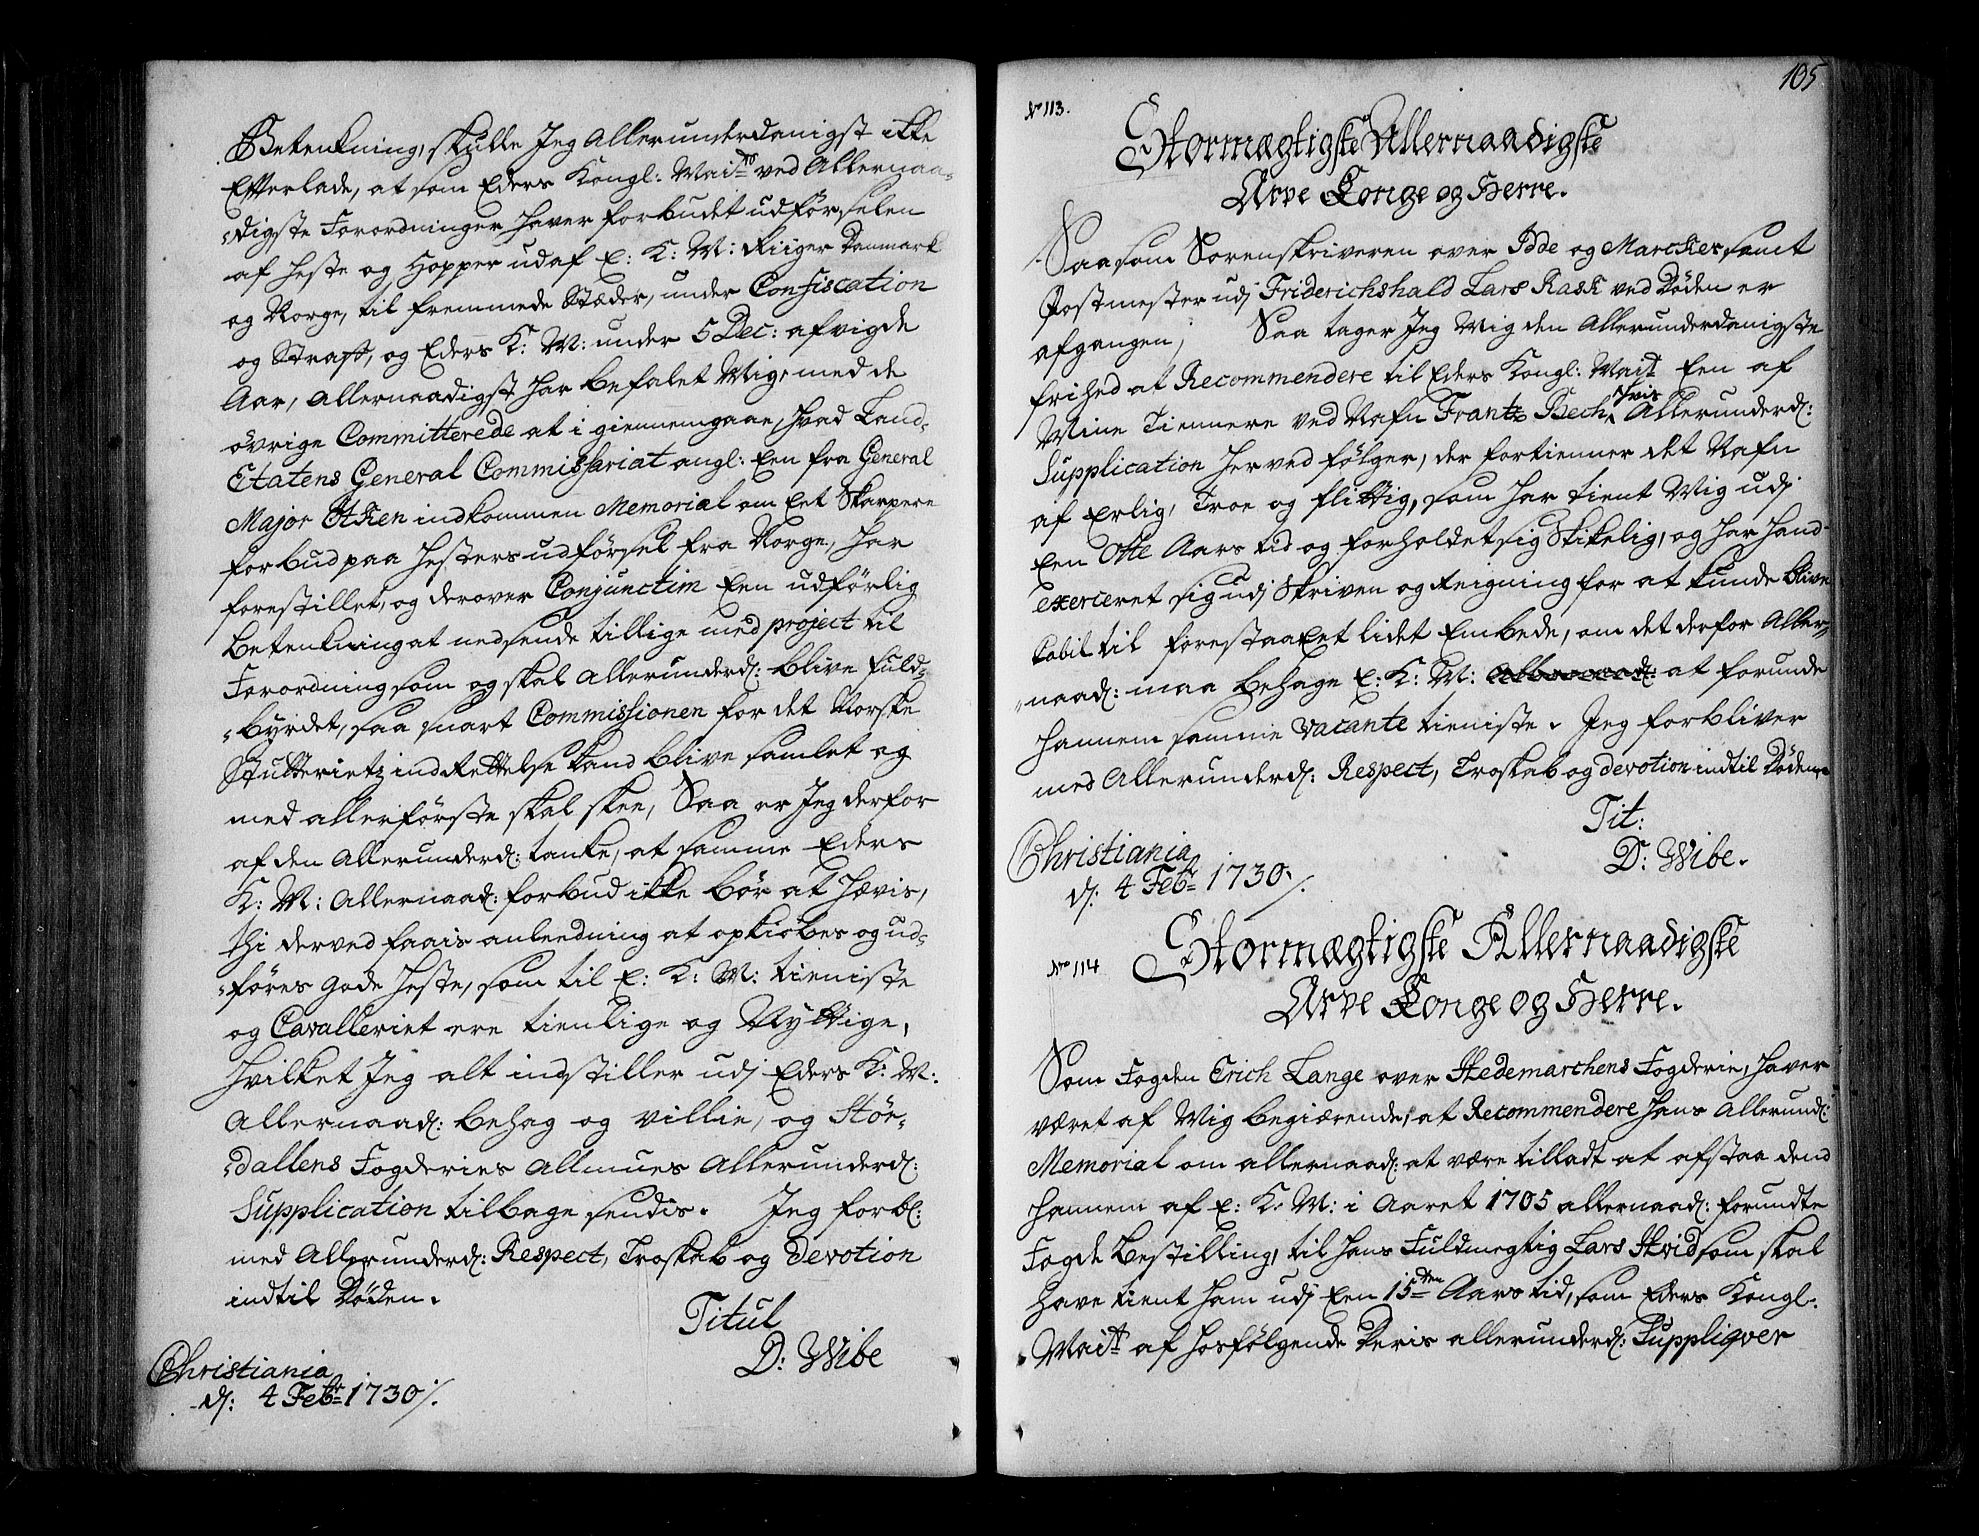 Betenkning, skulle Jeg Allerunderdanigst ikke
Efterlade, at som Eders Kongl: Maits ved Allernaa-
digste Forordninger haver forbudet udförselen
af heste og Hopper ud af E: K: M: Riiger Danmark
og Norge, til fremmede Stæder, under Confiscation
og Straff, og Eders K: M: under 5 Dec: afvigde
Aar, Allernaadigst har befalet Mig, med de
övrige Committerede at i giennemgaae, hvad Land-
Etatens General Commissariat angl: Een fra General
Major Ötken indkommen Memorial om Eet Skarpere
forbud paa Hesters udförsel fra Norge, har
forestillet, og derover Conjunctim Een udförlig
Betenkning at nedsende tillige med project til
Forordning, som og skal Allerunderd: blive fuld-
byrdet, saa snart Commissionen for det Norske
Stutterietz indRettelse kand blive samlet og
med allerförste skal skee, Saa er Jeg derfor
af den Allerunderd: tanke, at samme Eders
K: M: Allernaad: forbud ikke bör at hævis,
thi derved faais anleedning at opkiöbes og ud-
föres gode Heste, som til E: K: M: tieniste
og Cavalleriet ere tienlige og Nyttige,
hvilket Jeg alt indstiller udj Eders K: M:
Allernaad: behag og villie, og Stör-
dallens Fogderies Allmues Allerunderd:
Supplication tilbage sendis. Jeg forbl:
med Allerunderd: Respect, Troskab og Devotion
indtil Döden.
Titul
D: Wibe
Christiania
d: 4 Febr 1730 ./.
105
No 113.
Stormægtigste Allernaadigste
Arve Konge og Herre.
Saasom Sorenskriveren over Idde og Marcker, samt
Postmester udj Friderichshald Lars Rask ved Döden er
afgangen, Saa tager Jeg Mig den Allerunderdanigste
frihed at Recommendere til Eders Kongl: Mait Een af
Mine Tiennere ved Nafn Frantz Bech, hvis Allerunderd:
Supplication herved fölger, der fortienner det Nafn
af Erlig, Troe og flittig, som har tient Mig udj
Een Otte Aars tid og forholdet sig Skikelig, og har hand
exerceret sig udj Skriven og Reigning for at kunde blive
Cabil til forestaa Eet lidet Embede, om det derfor Aller-
naad: maa behage E: K: M: at forunde
hannem samme vacante tieniste. Jeg forbliver
med Allerunderd: Respect, Troskab og devotion indtil Döden
Tit:
D: Wibe.
Christiania
d: 4 Febr 1730 ./.
No 114
Stormægtigste Allernaadigste
Arve Konge og Herre.
Som Fogden Erich Lange over Hedemarchens Fogderie, haver
været af Mig begiærende, at Recommendere hans Allerund:
Memorial om allernaad: at være tilladt at afstaa dend
hannem af E: K: M: i Aaret 1705 allernaad: forundte
Fogde bestilling, til hans Fuldmegtig Lars Hvid som skal
have tient ham udj Een 15ten Aars tid, som Eders Kongl:
Maits af hosfölgende Deris allerunderd: Suppliqver